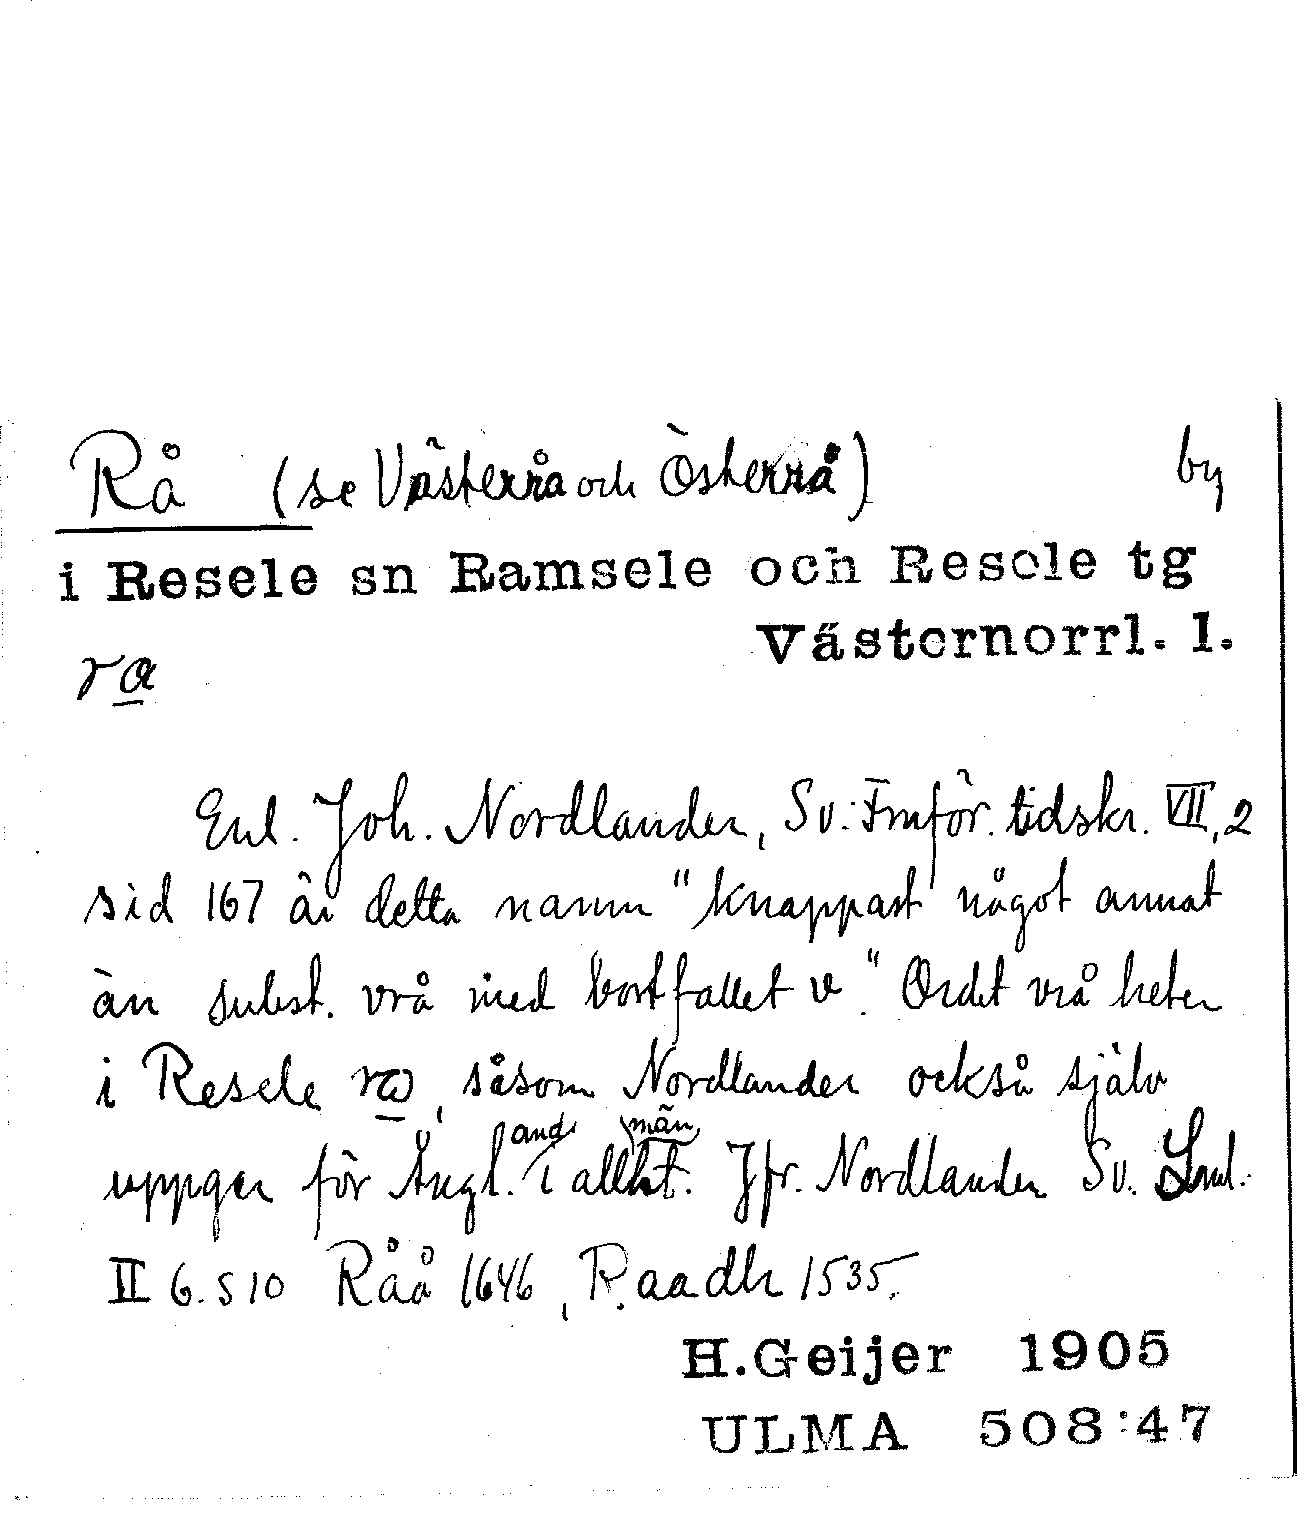 Rå (se Västerrå och Österrå) by
i Resele sn Ramsele och Resele tg
Västernorrl. l.
ra
Enl. Joh. Nordlander, Sv. Fmför. tidskr. VII, 2
sid 167 är detta namn "knappast något annat
än subst. vrå med bortfallet v." Ordet vrå heter
i Resele , såsom Nordlander också själv
uppger för Ångl. i allmänhet. Jfr. Nordlander Sv. Lml.
II 6. s 10 Råå 1646, Raadh 1535.
H. Geijer 1905
ULMA 508:47